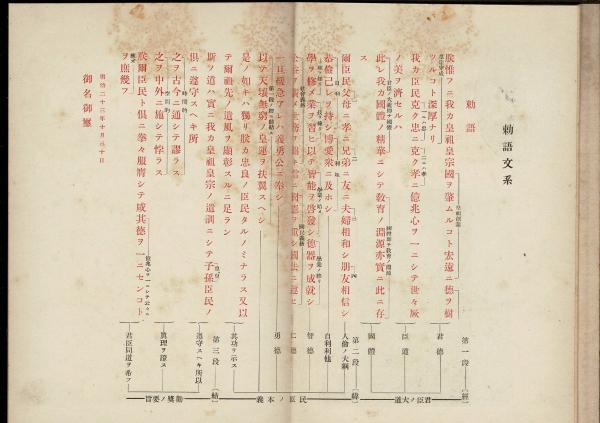 勅語文系
勅語
朕惟フニ我カ皇祖皇宗國ヲ肇ムルコト宏遠ニ德ヲ樹
ツルコト深厚ナリ
我カ臣民克ク忠ニ克ク孝ニ億兆心ヲ一ニシテ世々厥
ノ美ヲ濟セルハ
此レ我カ國體ノ精華ニシテ教育ノ淵源亦實ニ此ニ存
ス
爾臣民父母ニ孝ニ兄弟ニ友ニ夫婦相和シ朋友相信シ
恭儉己レヲ持シ博愛衆ニ及ホシ
學ヲ修メ業ヲ習ヒ以テ智能ヲ啓發シ德器ヲ成就シ
進テ公益ヲ廣メ世務ヲ開キ常ニ國憲ヲ重シ國法ニ遵ヒ
一旦緩急アレハ義勇公ニ奉シ
以テ天壤無窮ノ皇運ヲ扶翼スヘシ
是ノ如キハ獨リ朕カ忠良ノ臣民タルノミナラス又以
テ爾祖先ノ遺風ヲ顯彰スルニ足ラン
斯ノ道ハ實ニ我カ皇祖皇宗ノ遺訓ニシテ子孫臣民ノ
俱ニ遵守スヘキ所
之ヲ古今ニ通シテ謬ラス
之ヲ中外ニ施シテ悖ラス
朕爾臣民ト俱ニ拳々服膺シテ咸其德ヲ一ニセンコト
ヲ庶幾フ
明治二十三年十月三十日
御名御璽
第一段
[經]
君德
臣道
國體
君臣ノ大道
第二段
[緯]
人倫ノ大綱
自利利他
智德
仁德
勇德
民臣ノ本義
其功ヲ示ス
第三段
[結]
遵守スヘキ所以
眞理ヲ證ス
君臣同道ヲ希フ
勸奬ノ要旨